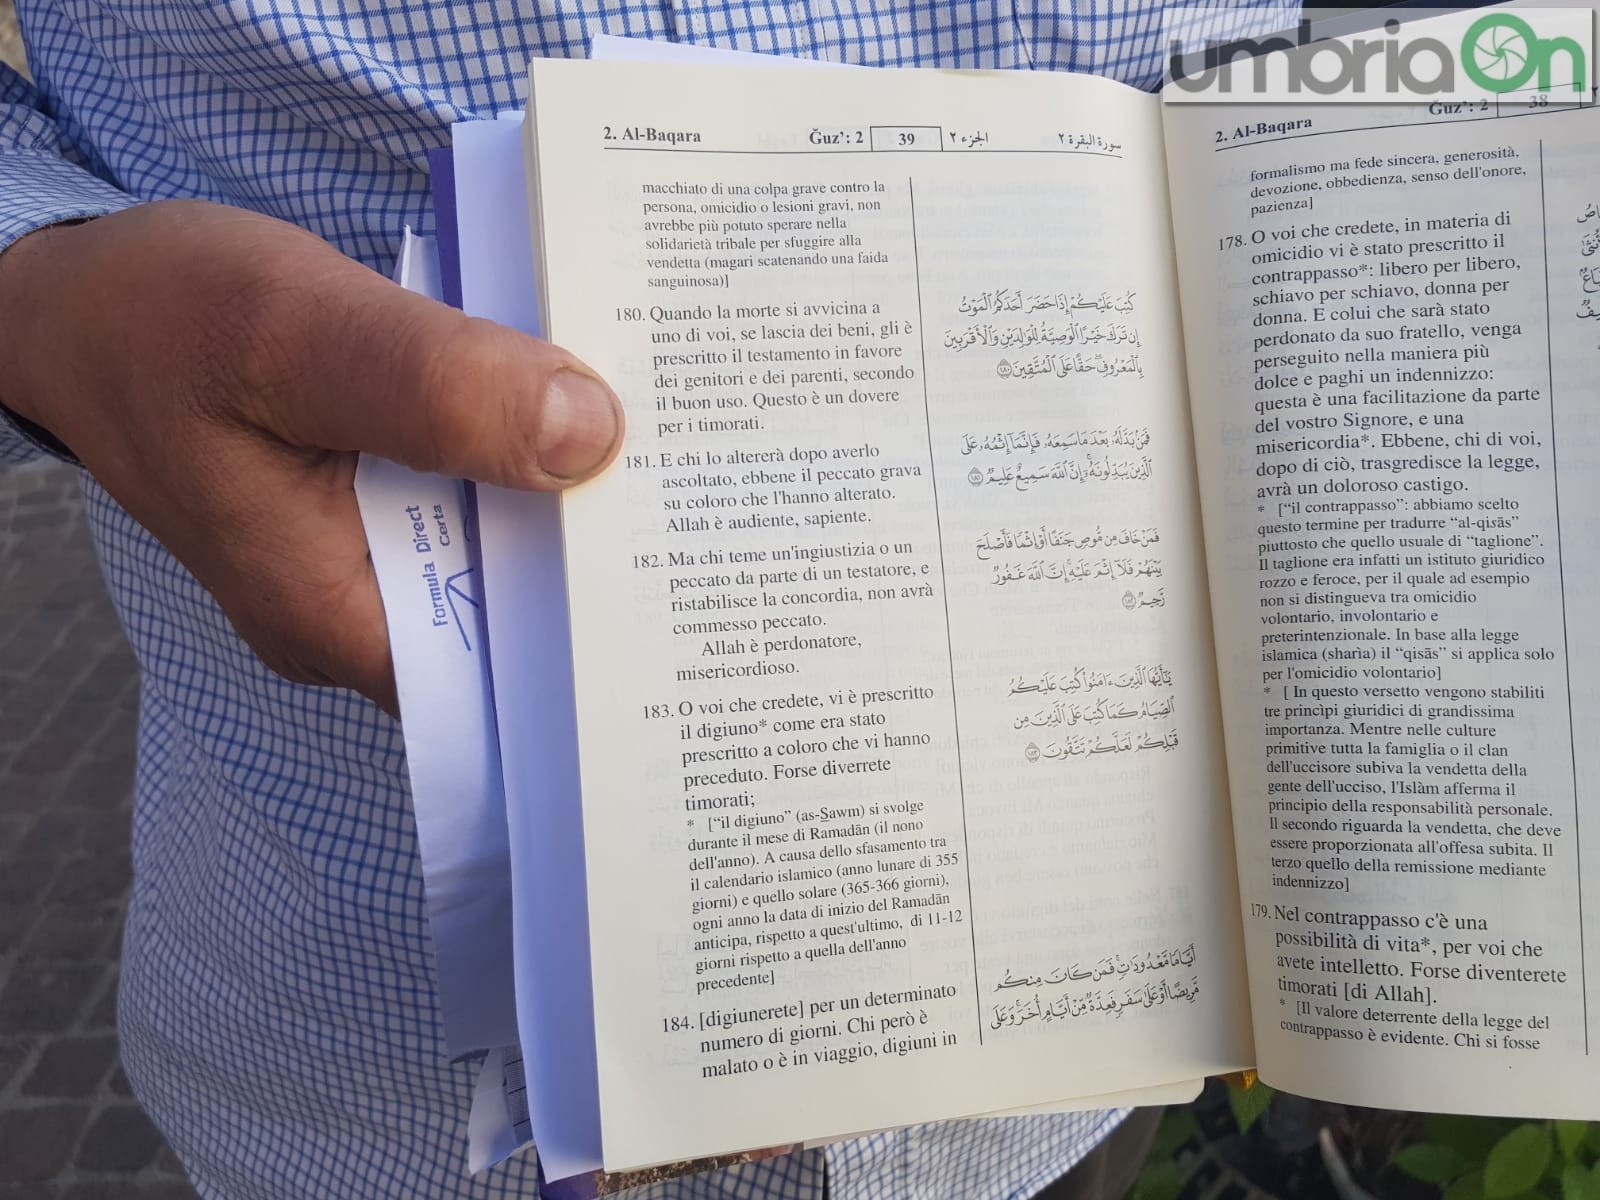 umbriaOn
2. Al-Baqara Ğuz’: 2 39 الجزء ٢ سورة البقرة ٢
macchiato di una colpa grave contro la
persona, omicidio o lesioni gravi, non
avrebbe più potuto sperare nella
solidarietà tribale per sfuggire alla
vendetta (magari scatenando una faida
sanguinosa)]
180. Quando la morte si avvicina a
uno di voi, se lascia dei beni, gli è
prescritto il testamento in favore
dei genitori e dei parenti, secondo
il buon uso. Questo è un dovere
per i timorati.
181. E chi lo altererà dopo averlo
ascoltato, ebbene il peccato grava
su coloro che l'hanno alterato.
Allah è audiente, sapiente.
182. Ma chi teme un'ingiustizia o un
peccato da parte di un testatore, e
ristabilisce la concordia, non avrà
commesso peccato.
Allah è perdonatore,
misericordioso.
183. O voi che credete, vi è prescritto
il digiuno* come era stato
prescritto a coloro che vi hanno
preceduto. Forse diverrete
timorati;
* [“il digiuno” (as-Sawm) si svolge
durante il mese di Ramadān (il nono
dell'anno). A causa dello sfasamento tra
il calendario islamico (anno lunare di 355
giorni) e quello solare (365-366 giorni),
ogni anno la data di inizio del Ramadān
anticipa, rispetto a quest'ultimo, di 11-12
giorni rispetto a quella dell'anno
precedente]
184. [digiunerete] per un determinato
numero di giorni. Chi però è
malato o è in viaggio, digiuni in
كُتِبَ عَلَيْكُمْ إِذَا حَضَرَ أَحَدَكُمُ ٱلْمَوْتُ
إِن تَرَكَ خَيْرًا ٱلْوَصِيَّةُ لِلْوَٰلِدَيْنِ وَٱلْأَقْرَبِينَ
بِٱلْمَعْرُوفِ ۖ حَقًّا عَلَى ٱلْمُتَّقِينَ ١٨٠
فَمَنۢ بَدَّلَهُۥ بَعْدَ مَا سَمِعَهُۥ فَإِنَّمَآ إِثْمُهُۥ عَلَى
ٱلَّذِينَ يُبَدِّلُونَهُۥٓ ۚ إِنَّ ٱللَّهَ سَمِيعٌ عَلِيمٌ ١٨١
فَمَنْ خَافَ مِن مُّوصٍ جَنَفًا أَوْ إِثْمًا فَأَصْلَحَ
بَيْنَهُمْ فَلَآ إِثْمَ عَلَيْهِ ۚ إِنَّ ٱللَّهَ غَفُورٌ
رَّحِيمٌ ١٨٢
يَٰٓأَيُّهَا ٱلَّذِينَ ءَامَنُوا۟ كُتِبَ عَلَيْكُمُ
ٱلصِّيَامُ كَمَا كُتِبَ عَلَى ٱلَّذِينَ مِن
قَبْلِكُمْ لَعَلَّكُمْ تَتَّقُونَ ١٨٣
أَيَّامًا مَّعْدُودَٰتٍ ۚ فَمَن كَانَ مِنكُم
مَّرِيضًا أَوْ عَلَىٰ سَفَرٍ فَعِدَّةٌ مِّنْ أَيَّامٍ أُخَرَ ۚ وَعَلَى
2. Al-Baqara Ğuz’: 2 38
formalismo ma fede sincera, generosità,
devozione, obbedienza, senso dell'onore,
pazienza]
178. O voi che credete, in materia di
omicidio vi è stato prescritto il
contrappasso*: libero per libero,
schiavo per schiavo, donna per
donna. E colui che sarà stato
perdonato da suo fratello, venga
perseguito nella maniera più
dolce e paghi un indennizzo:
questa è una facilitazione da parte
del vostro Signore, e una
misericordia*. Ebbene, chi di voi,
dopo di ciò, trasgredisce la legge,
avrà un doloroso castigo.
* [“il contrappasso”: abbiamo scelto
questo termine per tradurre “al-qisās”
piuttosto che quello usuale di “taglione”.
Il taglione era infatti un istituto giuridico
rozzo e feroce, per il quale ad esempio
non si distingueva tra omicidio
volontario, involontario e
preterintenzionale. In base alla legge
islamica (sharìa) il “qisās” si applica solo
per l'omicidio volontario]
* [ In questo versetto vengono stabiliti
tre princìpi giuridici di grandissima
importanza. Mentre nelle culture
primitive tutta la famiglia o il clan
dell'uccisore subiva la vendetta della
gente dell'ucciso, l'Islàm afferma il
principio della responsabilità personale.
Il secondo riguarda la vendetta, che deve
essere proporzionata all'offesa subita. Il
terzo quello della remissione mediante
indennizzo]
179. Nel contrappasso c'è una
possibilità di vita*, per voi che
avete intelletto. Forse diventerete
timorati [di Allah].
* [Il valore deterrente della legge del
contrappasso è evidente. Chi si fosse
Formula Direct
Certa